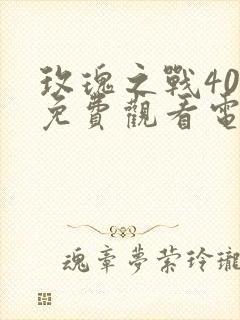 玫瑰之戰40
免費觀看電
魂章夢縈玲瓏